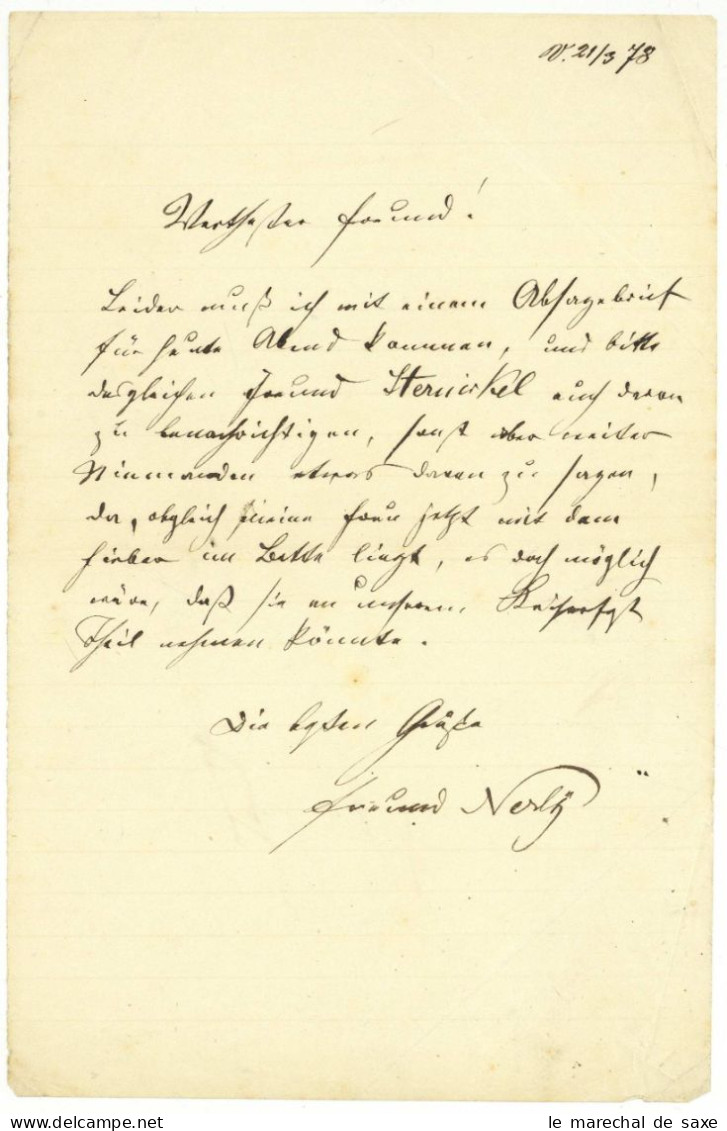 V. 21/3 78
Werthester Freund!
Leider muß ich mit einem Absagebrief
für heute Abend kommen, und bitte
desgleichen Freund Sternickel auch davon
zu benachrichtigen, sonst aber weiter
Niemanden etwas davon zu sagen,
da, obgleich meine Frau jetzt mit dem
Fieber im Bette liegt, es doch möglich
wäre, daß sie an unserem
Theil nehmen könnte.
Die besten Grüße
Freund Nerly
le marechal de saxe